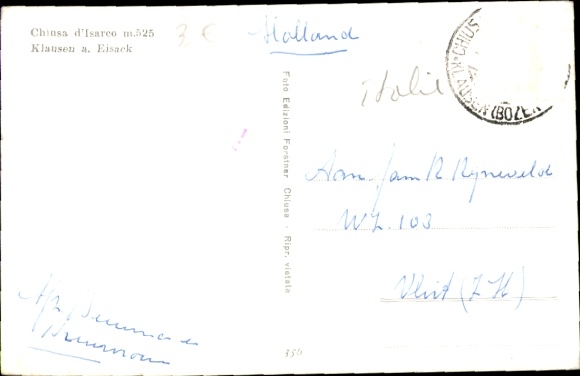 Chiusa d'Isarco m.525
Klausen a. Eisack
3 €
Holland
Italië
CHIUS
KLAUSEN (BOZEN
Foto Edizioni Forstner Chiusa - Ripr. vietata
Aan Fam R Rijneveld
WL. 103
Vliet (Z H)
Afz.
356